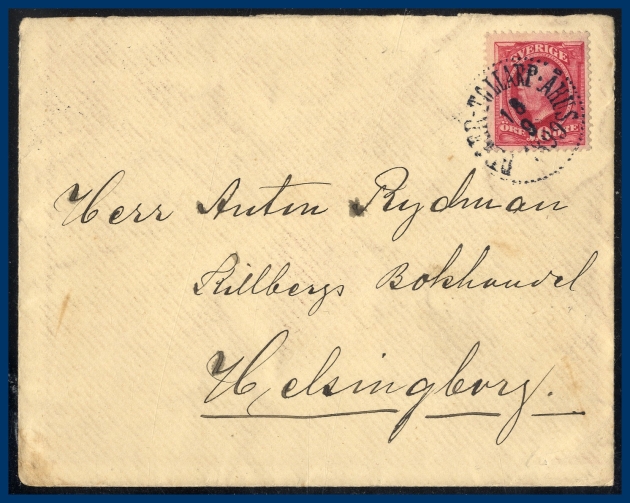 SVERIGE
TOMMARP-ÅHUS
18
9
1899
Herr Anton Rydman
Killbergs Bokhandel
Helsingborg.